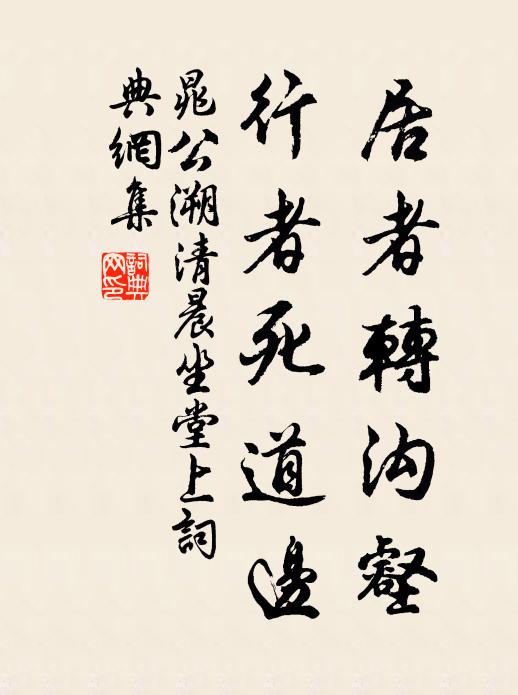 居者轉沟壑
行者死道邊
晁公溯清晨坐堂上詞
典網集
詞典
网印